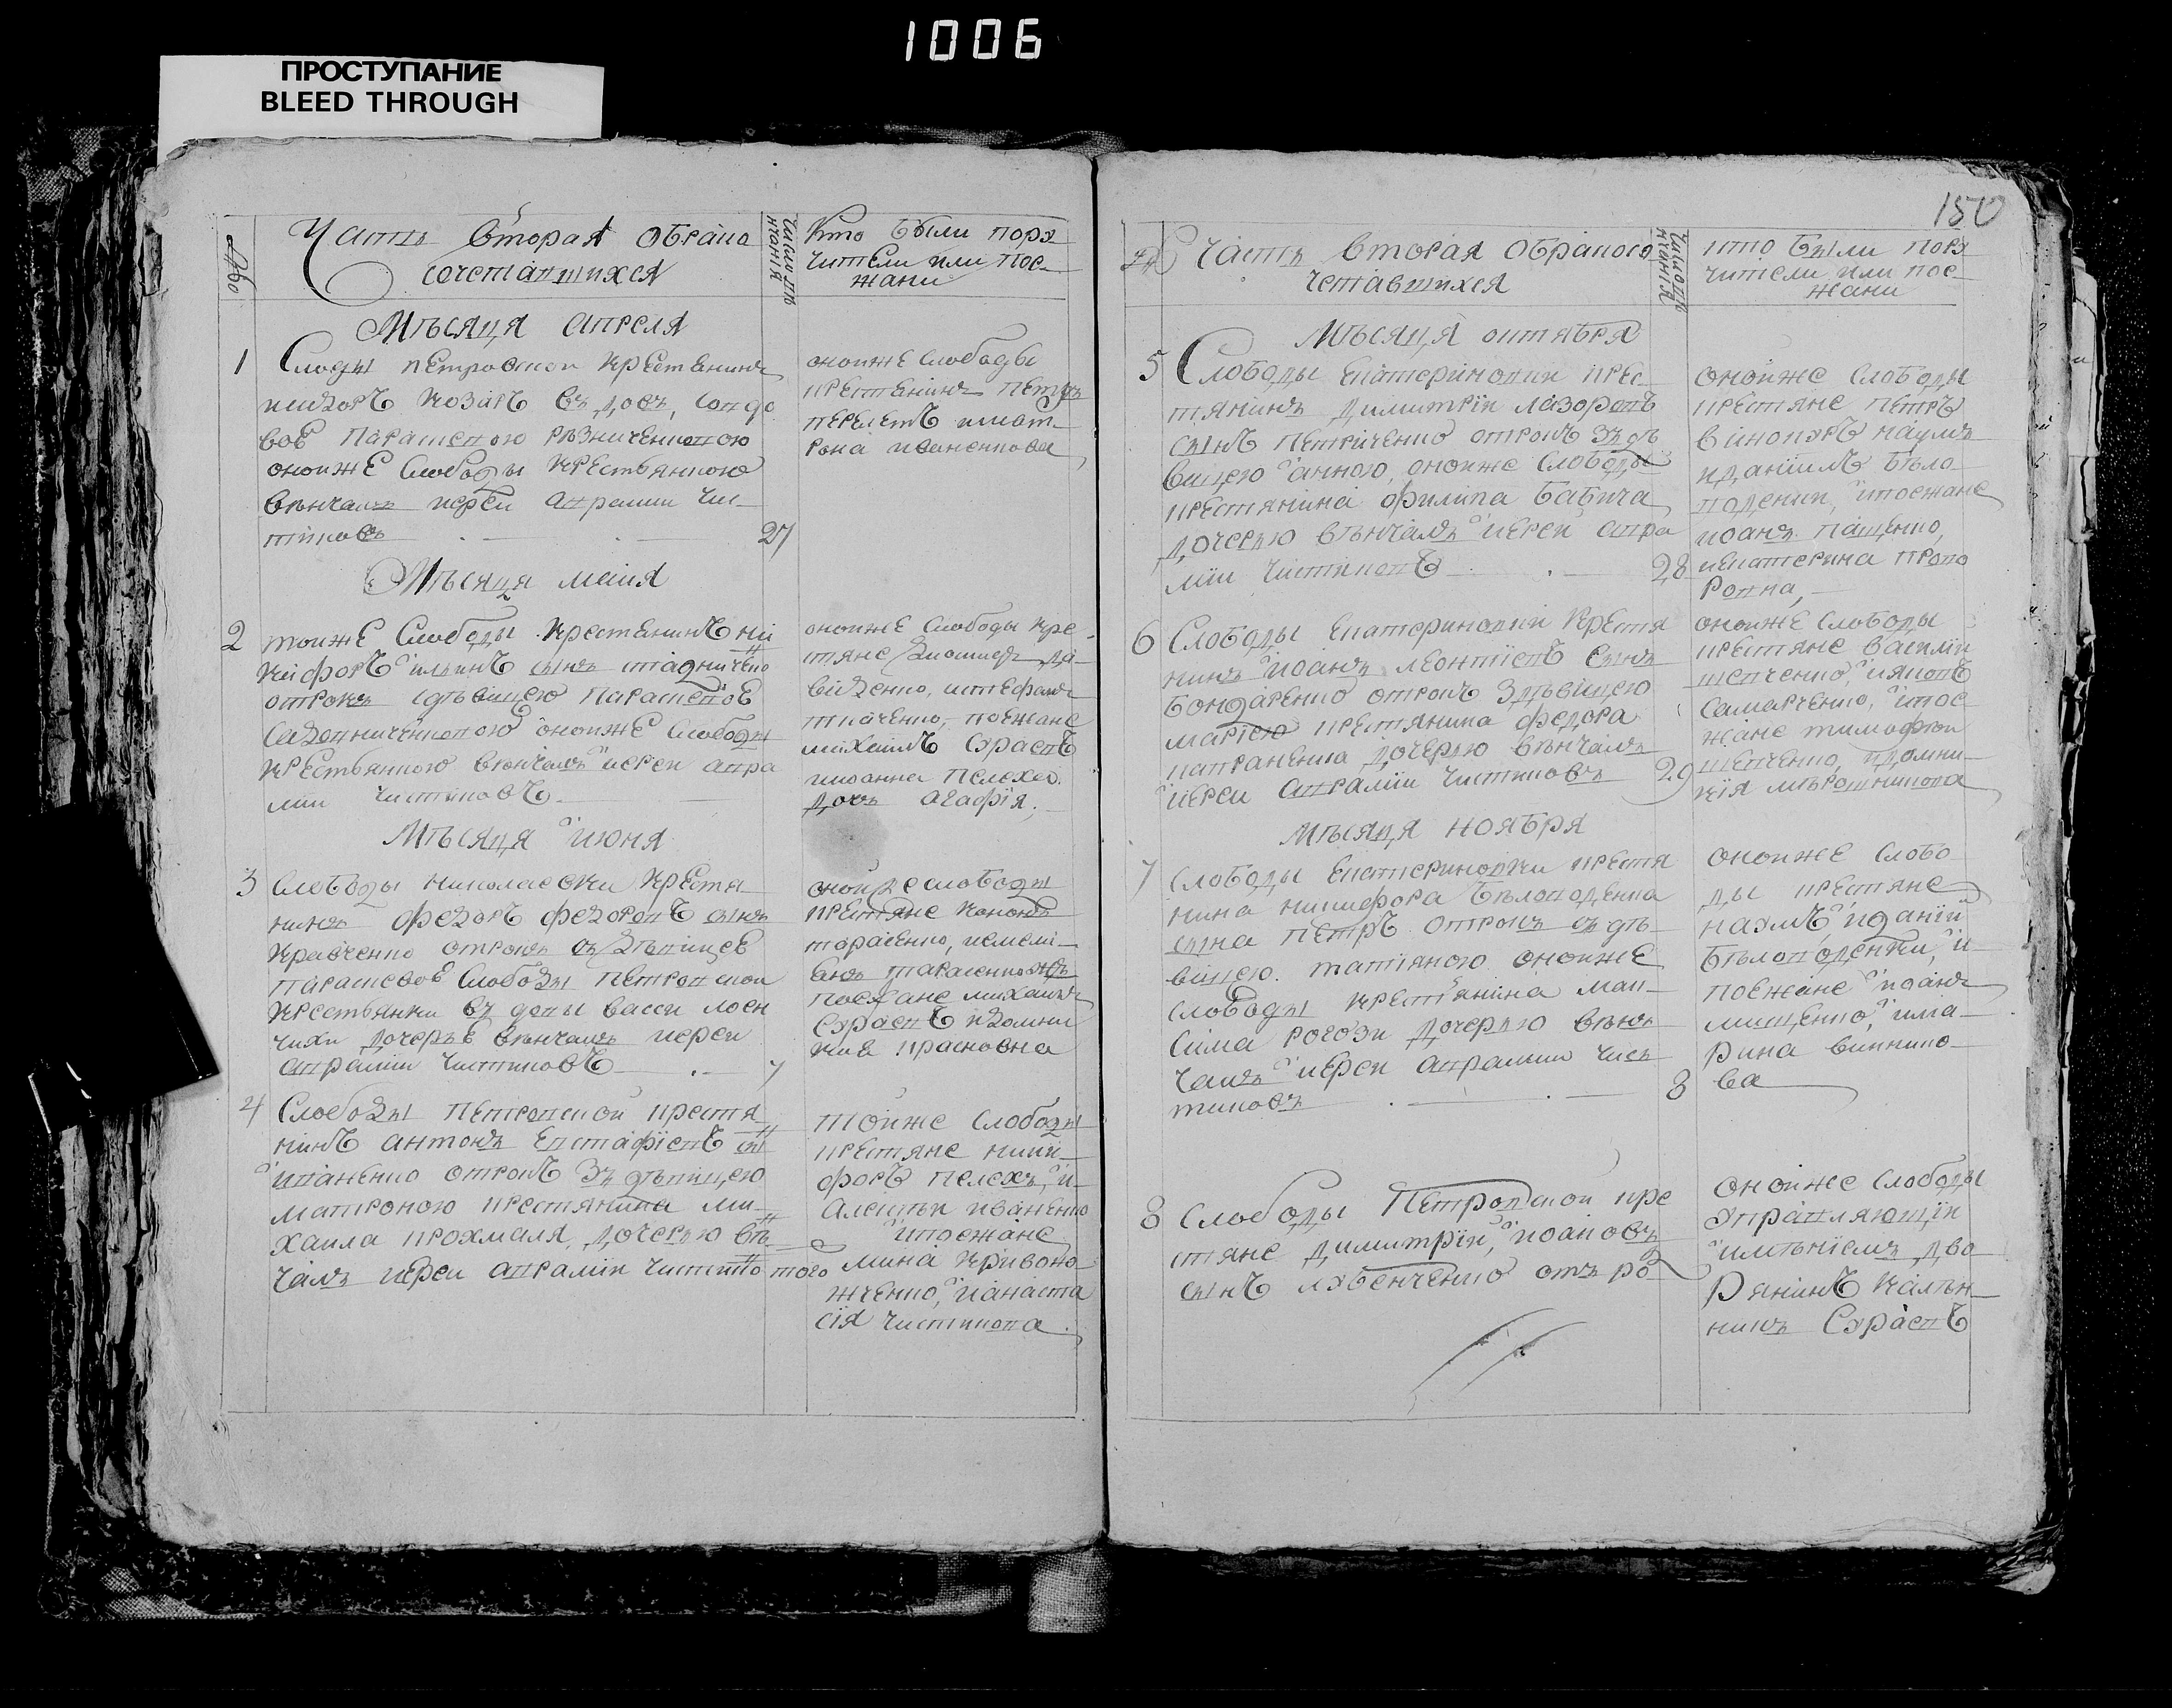 1006
ПРОСТУПАНИЕ
BLEED THROUGH
Часть Вторая обрако
сочетавшихся
Число вѣнчанія
Кто были порȣ
чители или поѣ-
жани
Мѣсяца Апреля
1
Слоды петровской крестьянинъ
козаръ въ довъ, со вдо
вое парасцевою
оноиже слободы крестьянкою
вѣнчалъ иерей аврамии чис-
тиковъ 27
оноиже слободы
крестянинъ петръ
ивашенкова
Мѣсяца маия
2
тоиже слободы крестьянинъ ни
кифоръ ильинъ сынъ
отрокъ здѣвицею парасцевое
оноиже слободы
крестьянкою вѣнчалъ иерей авра
мии чистиковъ
оноиже слободы кре
стяне
ткаченко, поежане
михаилъ сȣраевъ
дочь агафїя.
Мѣсяца июня
3
слободы николаевки крестя
нинъ федоръ федоровъ сынъ
кравченко отрокъ съ дѣвицее
парасцевое слободы петровской
крестьянки вдовы васси лоен
чихи дочерье вѣнчалъ иерей
аврамии чистиковъ 7
оноиже слободы
крестяне кононъ
тарасенко,
поежане михаилъ
сȣраевъ идомни
кие красковна
4
Слободы петровской крестя
нинъ антонъ евстафїевъ сы
иваненко отрокъ зъ дѣвицею
матроною крестянина ми-
хаила крохмаля, дочерью вѣ
чалъ иерей аврамїи чистико того
тоиже слободы
крестяне ники-
форъ пелехъ, и
алексѣи иваненко
ипоежане
мина кривоно
жченко, ианаста
сїя чистикова
150
Часть вторая обракосо
четавшихся
Число вѣнчанія
кто были порȣ
чители или пое-
жани
Мѣсяца октября
5
Слободы екатериновки крес-
тянинъ димитрїи лазоревъ
сынъ петриченко отрокъ зъ дѣ
вицею анною, оноиже слободы
крестянина филипа бабича
дочерью вѣнчалъ иерей авра
мїи чистиковъ 28
оноиже слободы
крестяне петръ
винокȣръ наȣмъ
иданиилъ бѣло
поденки, ипоежане
иоанъ пащенко,
иекатерина прово
ровна,
6
Слободы екатериновки крестя
нинъ иоанъ леонтїевъ сынъ
бондаренко отрокъ здѣвицею
марїею крестянина федора
дочерью вѣнчалъ
иерей аврамїи чистиковъ 29
оноиже слободы
крестяне василїи
шевченко, ияковъ
самарченко, ипое
жане тимофей
шевченко, идомни-
кїя мѣрошникова
Мѣсяца ноября
7
слободы екатериновки крестя
нина никифора бѣлоподенка
сына петръ отрокъ зъ дѣ
вицею. татианою оноиже
слободы крестянина мак-
сима рогози дочерью вѣнъ
чалъ иерей аврамии чис
тиковъ 8
оноиже слобо
ды крестяне
наȣмъ иданїи
бѣлоподенки, и
поежане иоанъ
мищенко, има-
рина виннико-
ва
8
Слободы Петровской кре
стяне димитрїи, иоановъ
сынъ лȣбенченко отъ ро
оноиже слободы
ȣправляющїи
имѣнїемъ дво
рянинъ калѣн-
никъ сȣраевъ